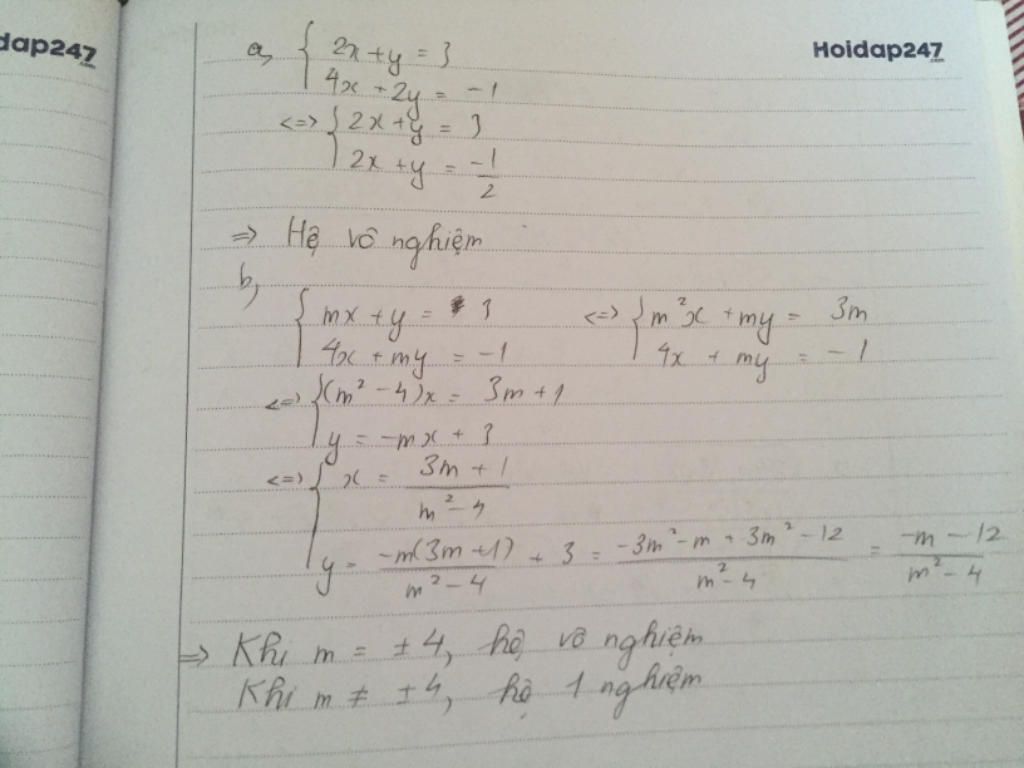 dap247
.com
Hoidap247
.com
a, { 2x + y = 3
4x + 2y = -1
<=> { 2x + y = 3
2x + y = -1/2
=> Hệ vô nghiệm
b,
{ mx + y = 3 <=> { m²x + my = 3m
4x + my = -1 4x + my = -1
<=> { (m² - 4)x = 3m + 1
y = -mx + 3
<=> { x = (3m + 1)/(m² - 4)
y = -m(3m + 1)/(m² - 4) + 3 = (-3m² - m + 3m² - 12)/(m² - 4) = (-m - 12)/(m² - 4)
=> Khi m = ±4, hệ vô nghiệm
Khi m ≠ ±4, hệ 1 nghiệm